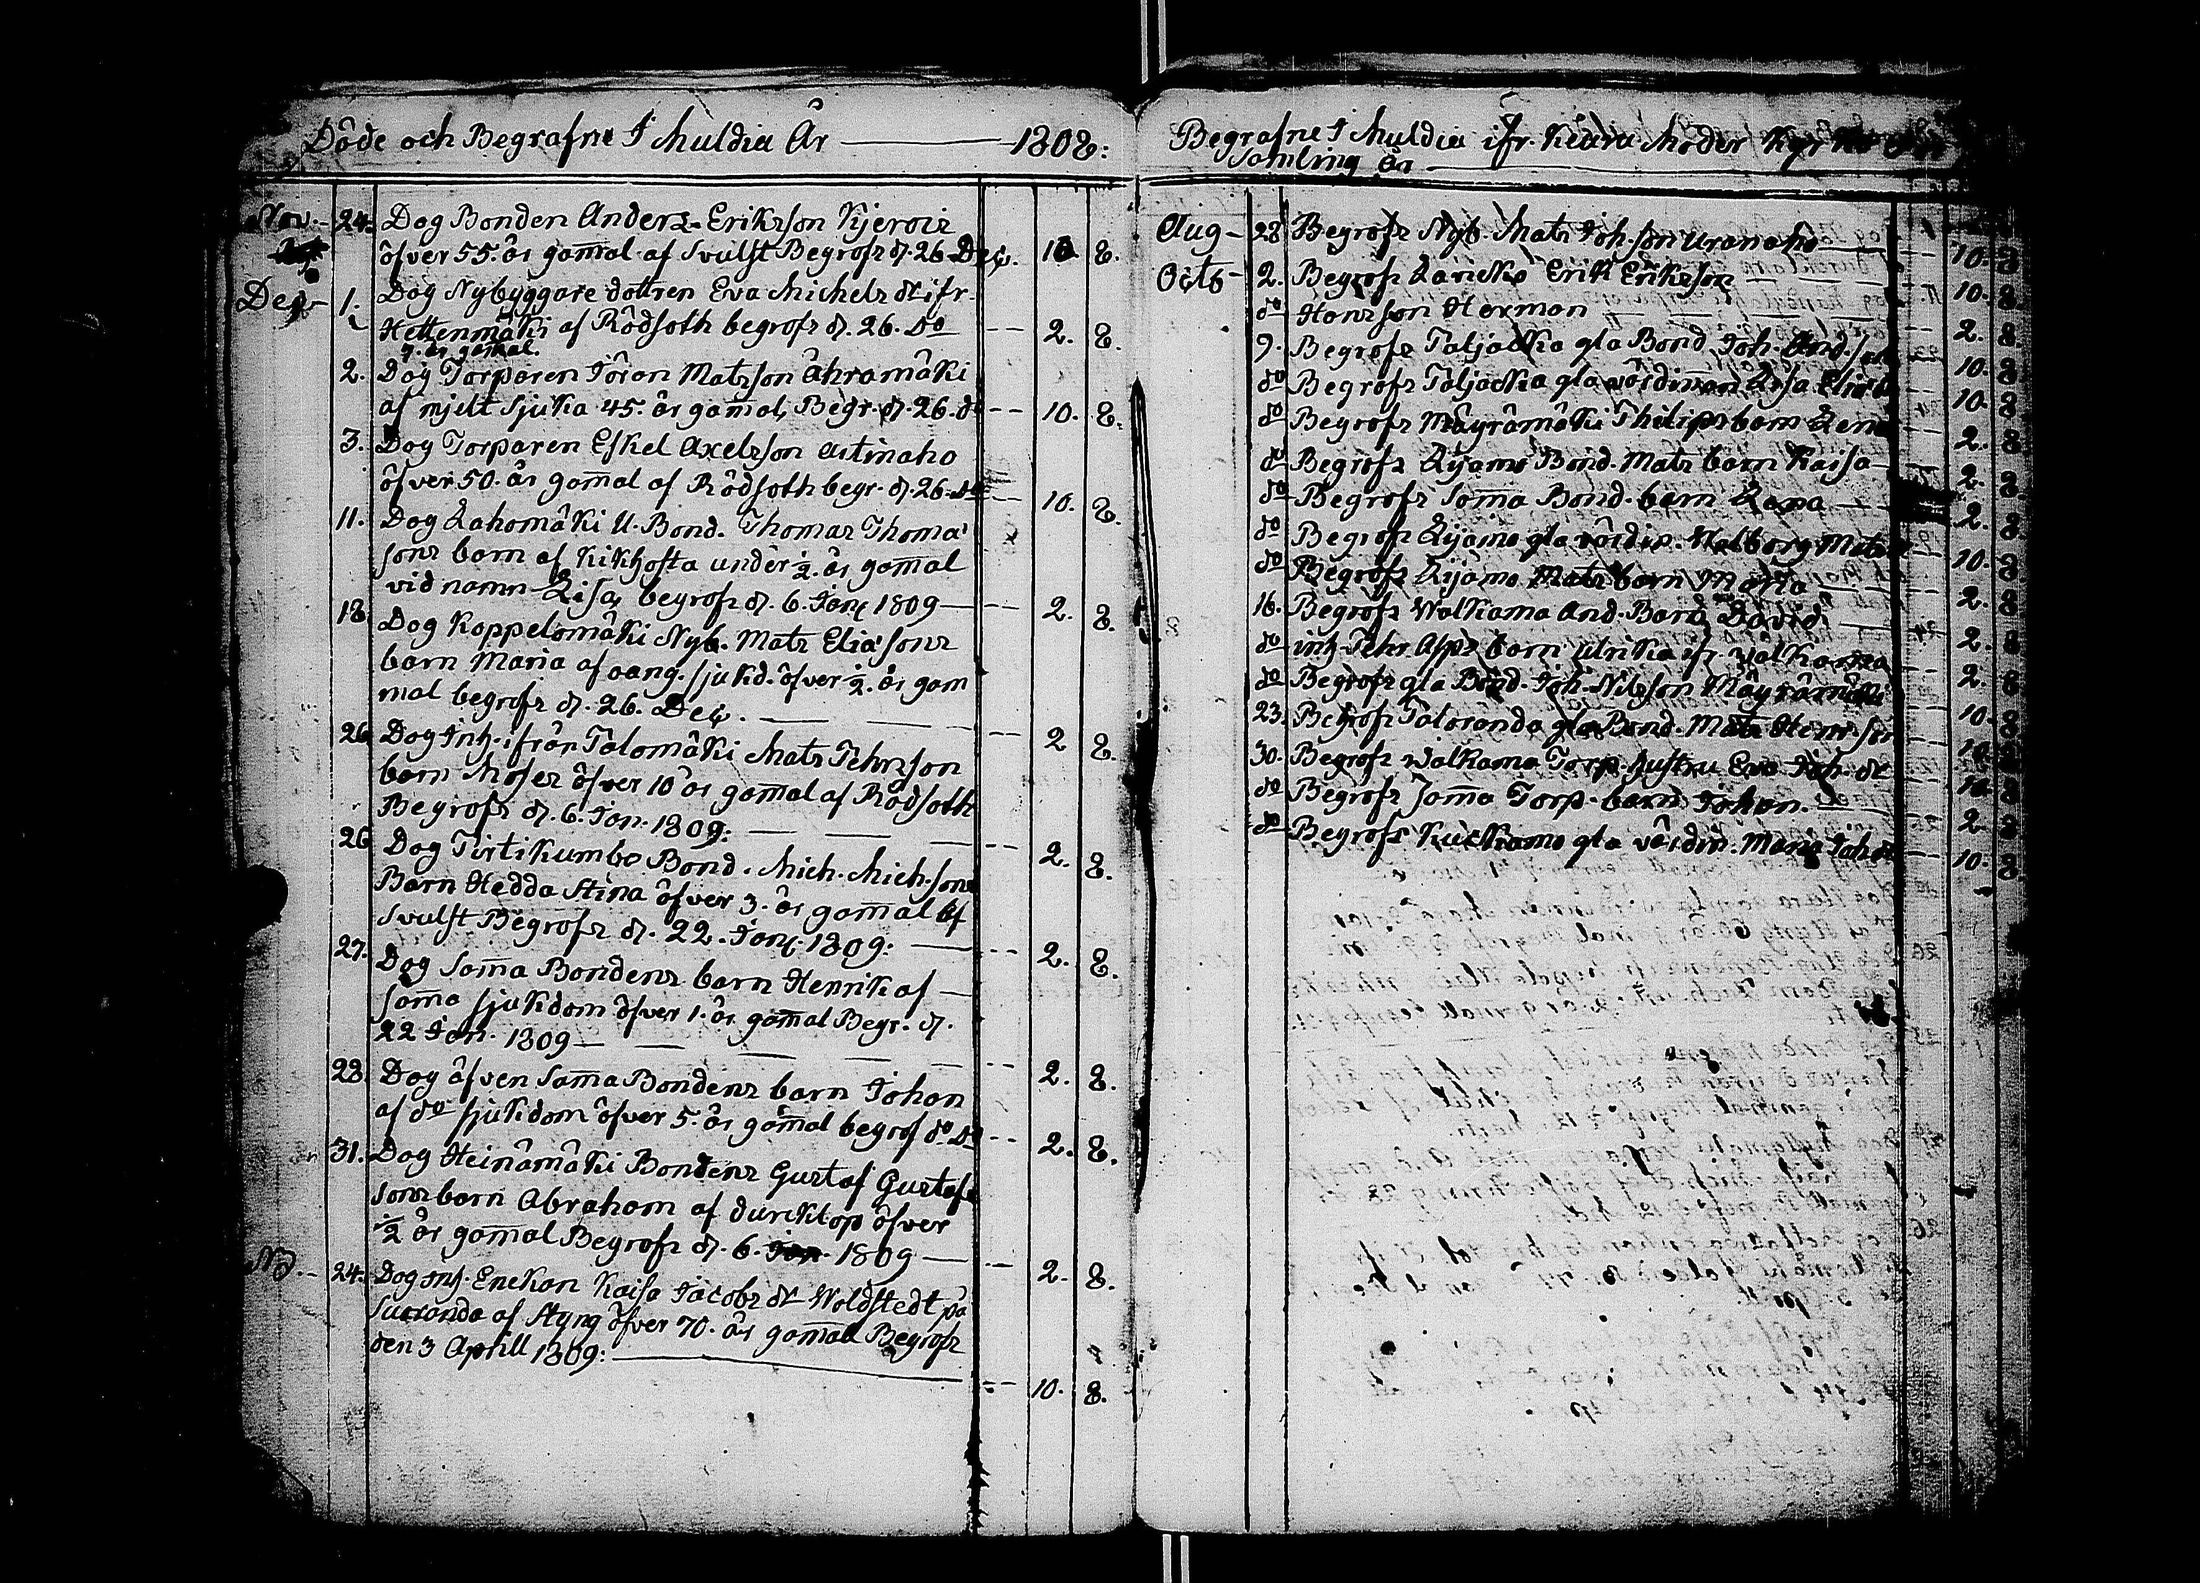 Döde och Begrafne I Muldia År 1808:
Nov. 24. Dog Bonden Anders Erikzson Kjerois
öfver 55. år gam̄al af Svulst Begrofs d. 26 Dec. 10 8.
Dec. 1. Dog Nybyggare dottren Eva Michels dr ifr.
Hettenmäki af Rödsoth begrofs d. 26. do 2. 8.
år gam̄al.
2. Dog Torparen Jöran Matzson Ahramäki
af mjelt sjuka 45. år gam̄al, Begr. d. 26. do 10. 8.
3. Dog Torparen Eskel Axelzson Autinaho
öfver 50. år gam̄al af Rödsoth begr. d. 26. do 10. 8.
11. Dog Lahomäki U. Bond. Thomas Thoma
sons barn af Kikhosta under ½. år gam̄al
vid namn Lisa, begrofs d. 6. Jan. 1809 2. 8.
18. Dog Koppelomäki Nyb. Mats Elia sons
barn Maria af oang. sjukd. öfver ½. år gam
mal begrofs d. 26. Dec. 2 8.
26. Dog Inh. ifrån Talomäki Mats Pehrsson
barn Moses öfver 10 år gam̄al af Rödsoth
Begrofs d. 6. Jan. 1809: 2. 8.
26 Dog Pirtikumbo Bond. Mich. Mich. sons
Barn Hedda Stina öfver 3. år gam̄al af
Svulst Begrofs d. 22. Jan. 1809: 2. 8.
27. Dog Sam̄a Bondens barn Henrik af
sam̄a sjukdom öfver 1. år gam̄al Begr. d.
22 Jan. 1809 2. 8.
28. Dog äfven Sam̄a Bondens barn Johan
af do sjukdom öfver 5. år gam̄al begrof do do 2. 8.
31. Dog Heinämäki Bondens Gustaf Gustafs
sons barn Abraham af durcklop öfver
½ år gam̄al Begrofs d. 6. Jan. 1809 2. 8.
NB. 24. Dog Enekan Kaisa Jacobs dr Woldstedt på
Suuranda af Styng öfver 70. år gam̄al Begrofs
den 3 Aprill 1809: 10. 8.
Begrafne I Muldia ifr. Keuru Moder
Samling år
Aug 28 Begrofs Nyb. Mats Joh. son Uranaho 10. 8.
Octb 2. Begrofs Erik Erikzson 10. 8.
do Hanzson Herman 2. 8.
9. Begrofs gla Bond. Joh. And. 10. 8.
do Begrofs gla värdin̄an 10. 8.
do Begrofs Mäyrämäki Philips barn Lena 2. 8.
do Begrofs Lijamo Bond. Mats barn Kaisa 2. 8.
do Begrofs Sam̄a Bond. barn Lena 2. 8.
do Begrofs Lijamo gla värdin. Walborg Mats 10. 8.
do Begrofs Lijamo Mats barn Maria 2. 8.
16. Begrofs Walkama And. Barn David 2. 8.
do inh. Pehr barn Ulrika ifr Walkama 2. 8.
do Begrofs gla Bond. Joh. Nilsson Mäyrämäki 10. 8
23. Begrofs gla Bond. Mats Henr. son 10.
30. Begrofs Walkama Torp. hustru Eva Joh. dr 10. 8
do Begrofs sam̄a Torp. barn Johan. 2. 8
do Begrofs gla värdin. Maria 10. 8.